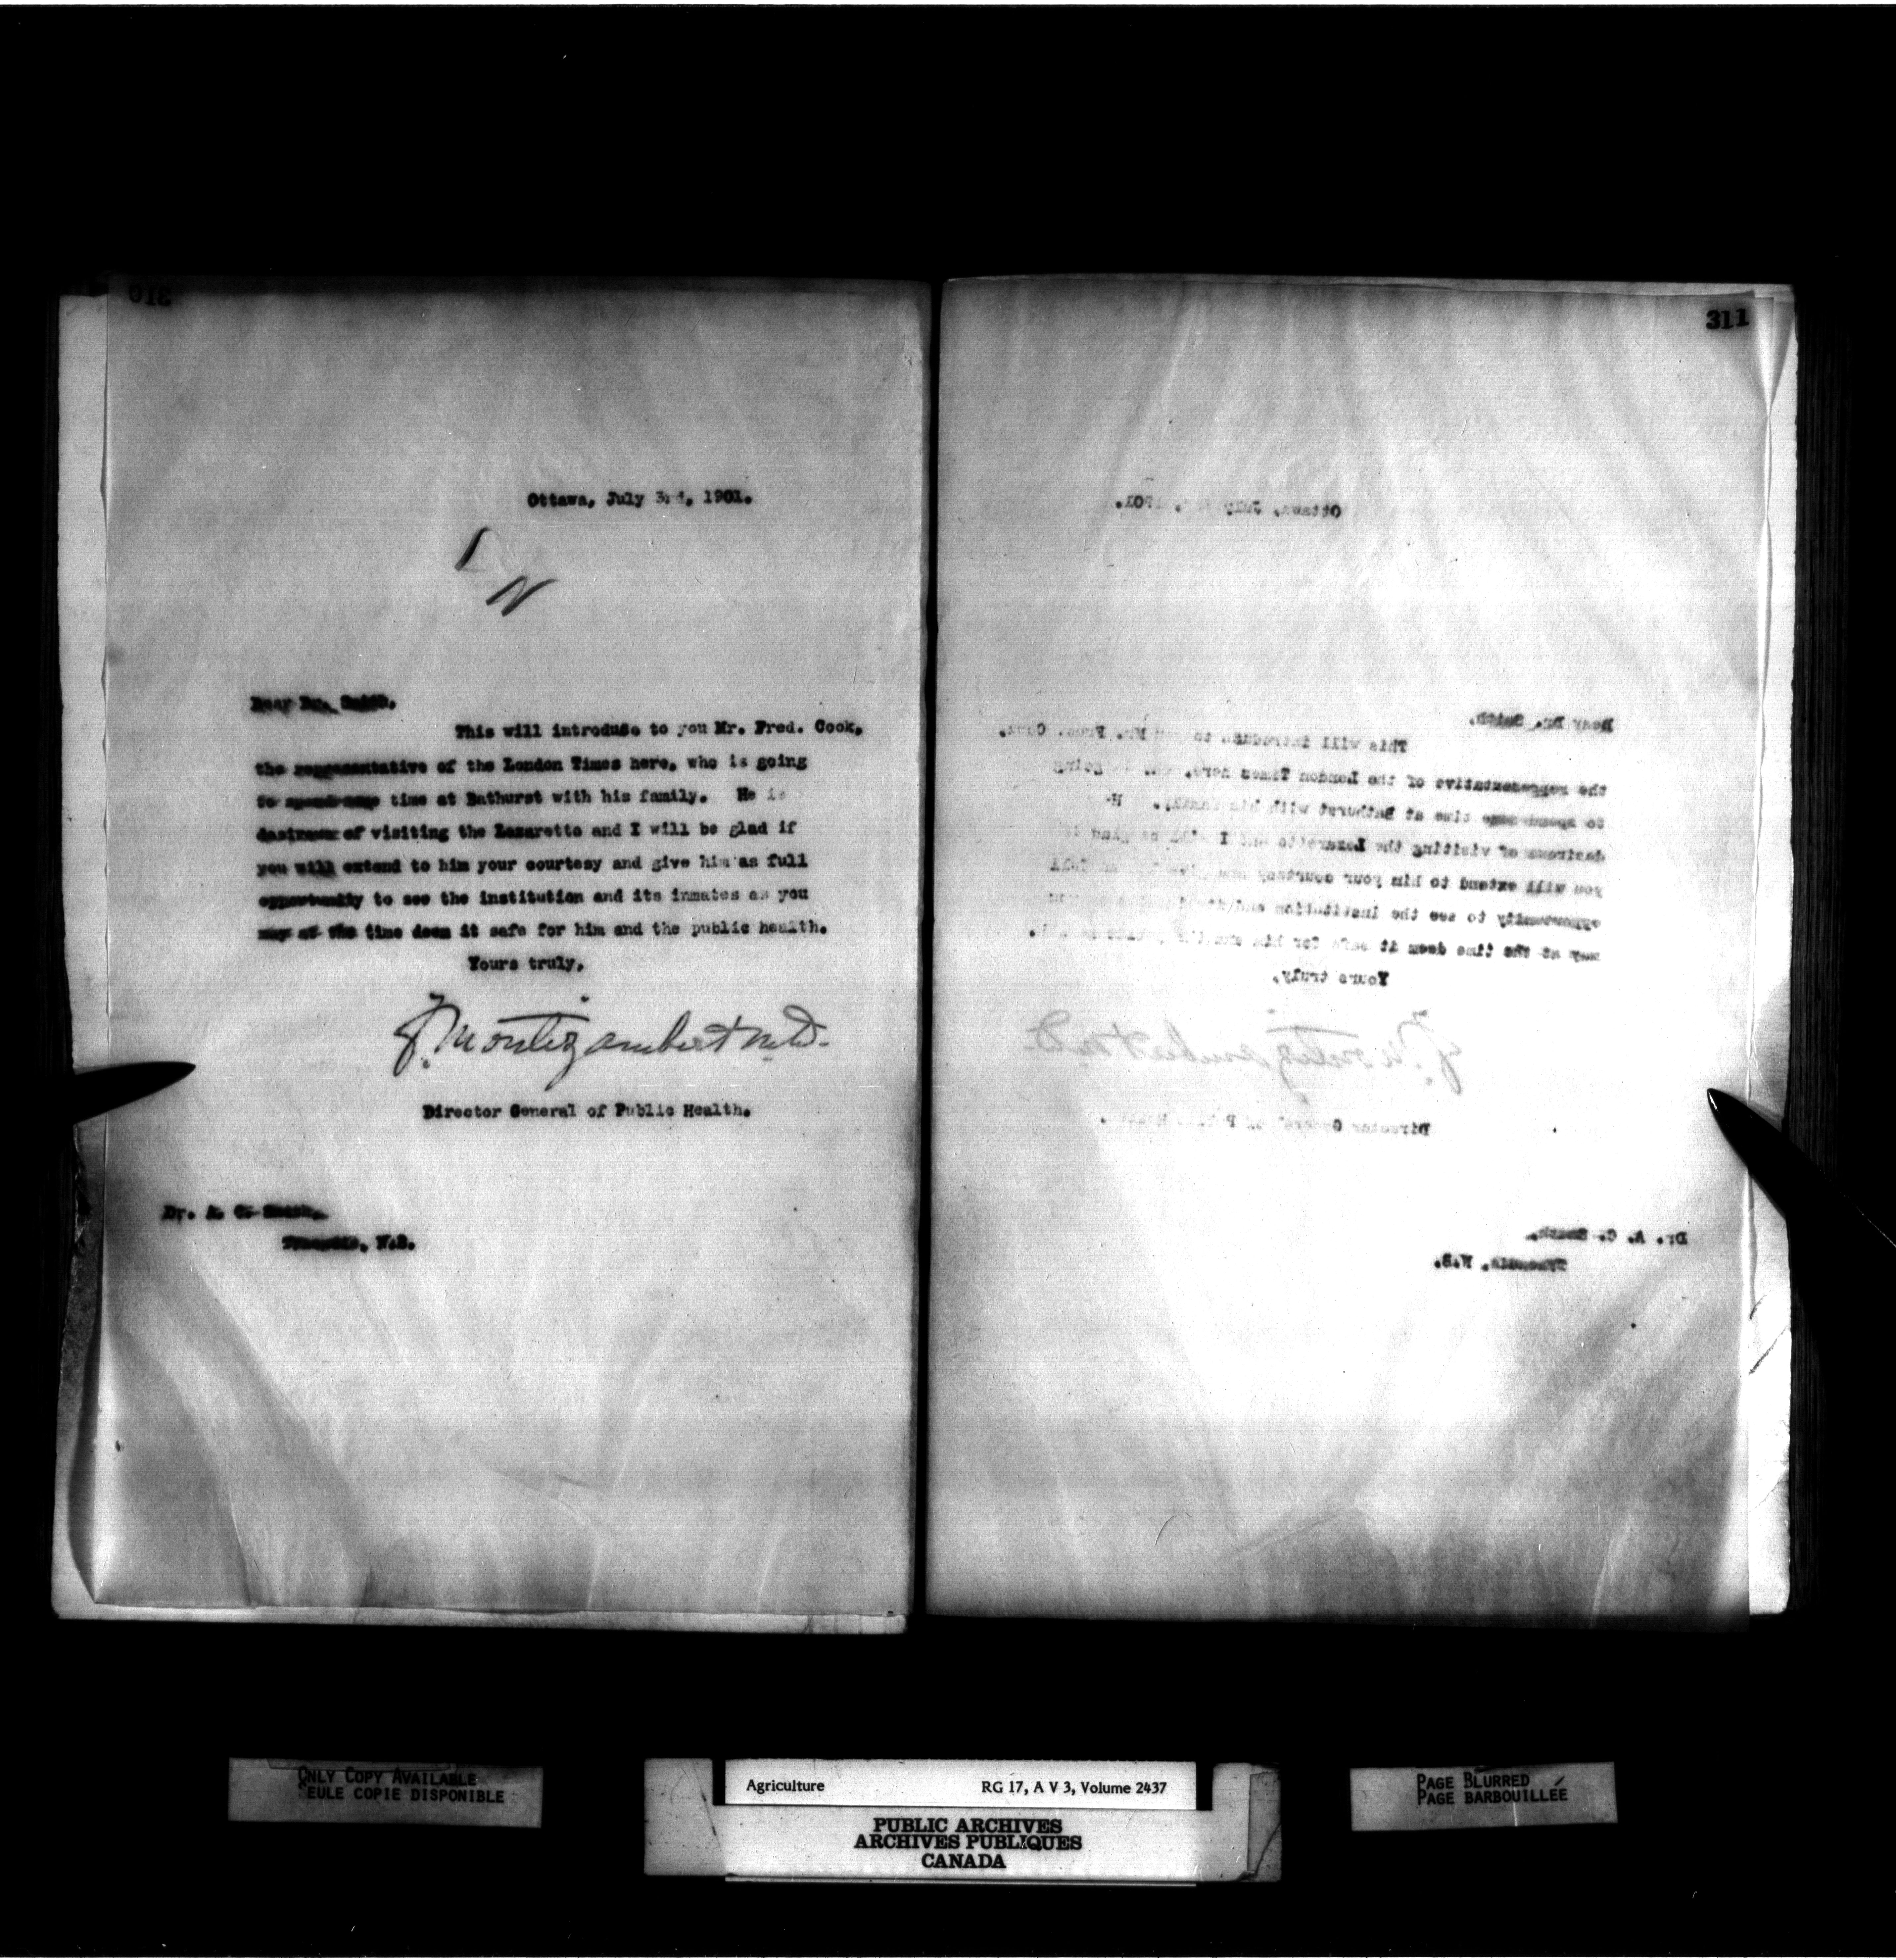 310
Ottawa, July 3rd, 1901.
L
N
Dear Dr. Smith,
This will introduce to you Mr. Fred. Cook,
the representative of the London Times here, who is going
to spend some time at Bathurst with his family. He is
desirous of visiting the Lazaretto and I will be glad if
you will extend to him your courtesy and give him as full
opportunity to see the institution and its inmates as you
may at the time deem it safe for him and the public health.
Yours truly,
F. Montizambert M.D.
Director General of Public Health.
Dr. A. C. Smith,
Tracadie, N.B.
311
Ottawa, July , 1901.
Dear Dr. Smith,
This will introduce to you Mr. Fred. Cook,
the representative of the London Times here, who is going
to spend some time at Bathurst with his family. H
desirous of visiting the Lazaretto and I will be glad if
you will extend to him your courtesy and give him as full
opportunity to see the institution and its inmates as you
may at the time deem it safe for him and the public health.
Yours truly,
F. Montizambert M.D.
Director General of Public Health.
Dr. A. C. Smith,
Tracadie, N.B.
ONLY COPY AVAILABLE
SEULE COPIE DISPONIBLE
Agriculture RG 17, A V 3, Volume 2437
PUBLIC ARCHIVES
ARCHIVES PUBLIQUES
CANADA
PAGE BLURRED
PAGE BARBOUILLÉE